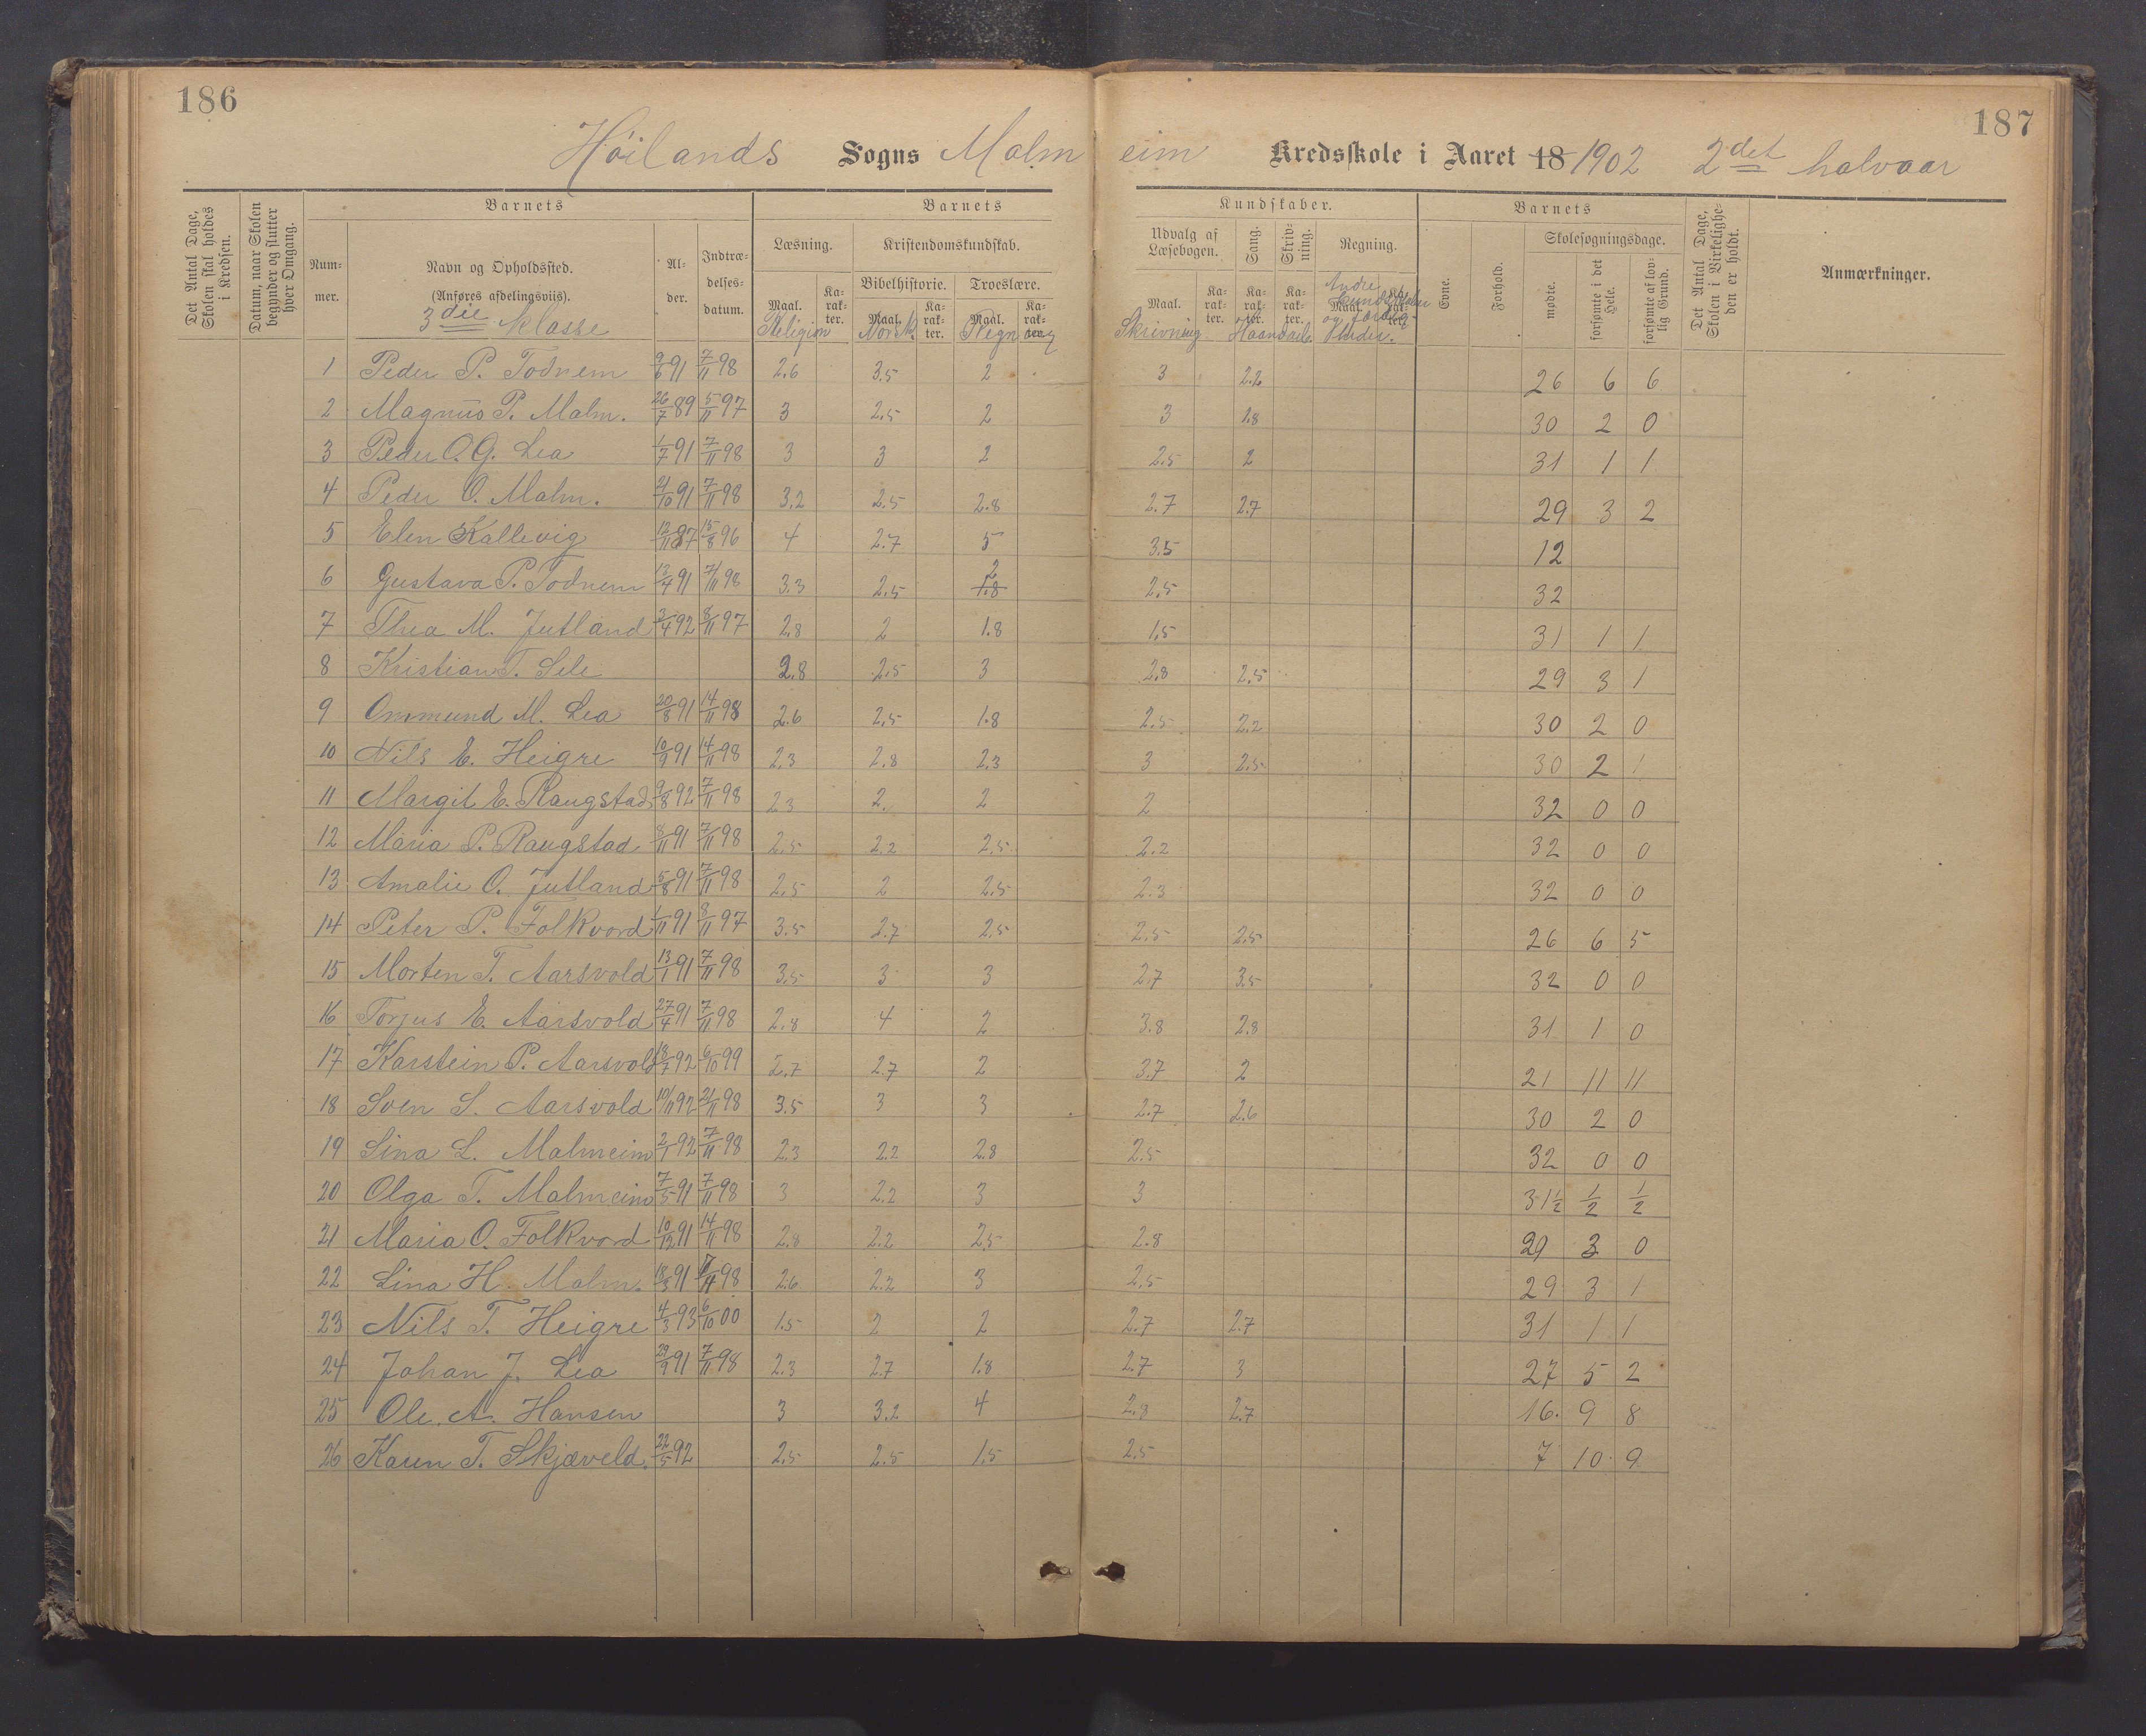 186
187
Høilands Sogns Malmeim Kredsskole i Aaret 18 1902 2det halvaar
Det Antal Dage, Skolen skal holdes i Kredsen.
Datum, naar Skolen begynder og slutter hver Omgang.
Barnets
Num-mer.
Navn og Opholdssted.
(Anføres afdelingsviis).
3die klasse
Al-der.
Indtræ-delses-datum.
Barnets
Læsning.
Maal. Ka-rak-ter.
Religion
Kristendomskundskab.
Bibelhistorie.
Maal. Ka-rak-ter.
Norsk
Troeslære.
Maal. Ka-rak-ter.
Regning
Kundskaber.
Udvalg af Læsebogen.
Maal. Ka-rak-ter.
Skrivning
Sang.
Ka-rak-ter.
Haandarb.
Skriv-ning.
Ka-rak-ter.
Regning.
Maal.
Andre Kundskaber og Færdigheder.
Barnets
Evne.
Forhold.
Skolesøgningsdage.
mødte.
forsømte i det Hele.
forsømte af lov-lig Grund.
Det Antal Dage, Skolen i Virkelighe-den er holdt.
Anmærkninger.
1 Peder P. Todnem 9/6 91 7/11 98 2.6 3.5 2 3 2.2 26 6 6
2 Magnus P. Malm. 26/7 89 5/11 97 3 2.5 2 3 1.8 30 2 0
3 Peder O. G. Lea 1/7 91 7/11 98 3 3 2 2.5 2 31 1 1
4 Peder O. Malm. 21/10 91 7/11 98 3.2 2.5 2.8 2.7 2.7 29 3 2
5 Elen Kallevig 12/11 87 15/8 96 4 2.7 5 3.5 12
6 Gustava P. Todnem 13/4 91 7/11 98 3.3 2.5 2 1.8 2.5 32
7 Thea M. Jutland 3/4 92 8/11 97 2.8 2 1.8 1.5 31 1 1
8 Kristian T. Sele 2.8 2.5 3 2.8 2.5 29 3 1
9 Ommund M. Lea 20/8 91 14/11 98 2.6 2.5 1.8 2.5 2.2 30 2 0
10 Nils E. Heigre 10/9 91 14/11 98 2.3 2.8 2.3 3 2.5 30 2 1
11 Margit E. Raugstad 9/8 92 7/11 98 2.3 2. 2 2 32 0 0
12 Maria P. Raugstad 8/11 91 7/11 98 2.5 2.2 2.5 2.2 32 0 0
13 Amalie O. Jutland 5/8 91 7/11 98 2.5 2 2.5 2.3 32 0 0
14 Peter P. Folkvord 1/11 91 8/11 97 3.5 2.7 2.5 2.5 2.5 26 6 5
15 Morten T. Aarsvold 13/1 91 7/11 98 3.5 3 3 2.7 3.5 32 0 0
16 Torjus E. Aarsvold 27/4 91 7/11 98 2.8 4 2 3.8 2.8 31 1 0
17 Karstein P. Aarsvold 18/7 92 6/10 99 2.7 2.7 2 3.7 2 21 11 11
18 Sven S. Aarsvold 10/11 92 21/11 98 3.5 3 3 2.7 2.6 30 2 0
19 Sina L. Malmeim 2/1 92 7/11 98 2.3 2.2 2.8 2.5 32 0 0
20 Olga T. Malmeim 7/5 91 7/11 98 3 2.2 3 3 31 1/2 1/2 1/2
21 Maria O. Folkvord 10/12 91 14/11 98 2.8 2.2 2.5 2.8 29 3 0
22 Lina H. Malm. 18/3 91 7/11 98 2.6 2.2 3 2.5 29 3 1
23 Nils T. Heigre 4/3 93 6/10 00 1.5 2 2 2.7 2.7 31 1 1
24 Johan J. Lea 29/9 91 7/11 98 2.3 2.7 1.8 2.7 3 27 5 2
25 Ole. A. Hansen 3 3.2 4 2.8 2.7 16. 9 8
26 Karen T. Skjæveld. 22/5 92 2.5 2.5 1.5 2.5 7 10. 9